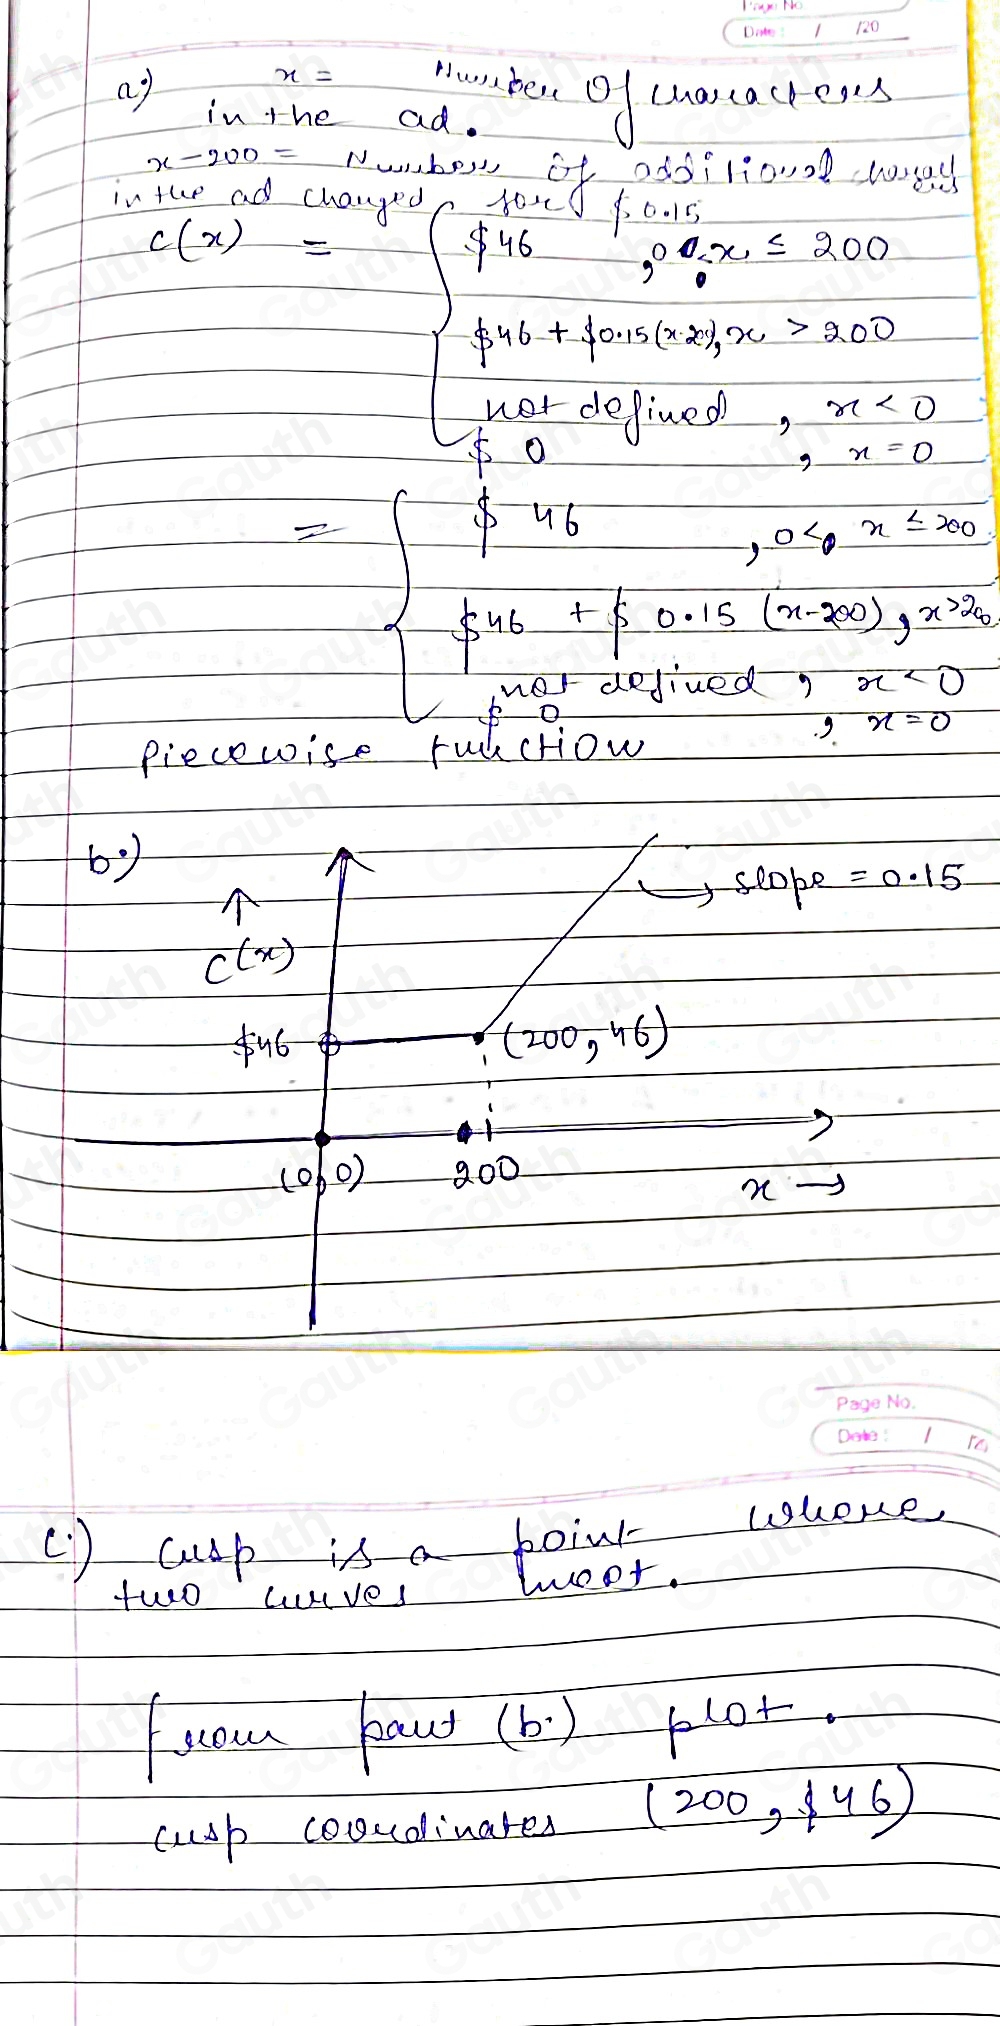 Page No
Date: / /20
a.) x = Number of characters
in the ad.
x-200 = Number of additional
in the ad charged for $0.15
C(x) = $46 , 0 < x ≤ 200
$46 + $0.15(x-200), x > 200
not defined , x < 0
$ 0 , x = 0
= $ 46 , 0 < x ≤ 200
$46 + $ 0.15 (x-200), x > 200
not defined , x < 0
$ 0 , x = 0
Piecewise function
b.)
↑
C(x)
→ slope = 0.15
$46
(200, 46)
(0,0) 200
x →
Page No.
Date: /
c.) cusp is a point where
two curves meet.
from part (b.) plot.
cusp coordinates (200, $46)
Gauth